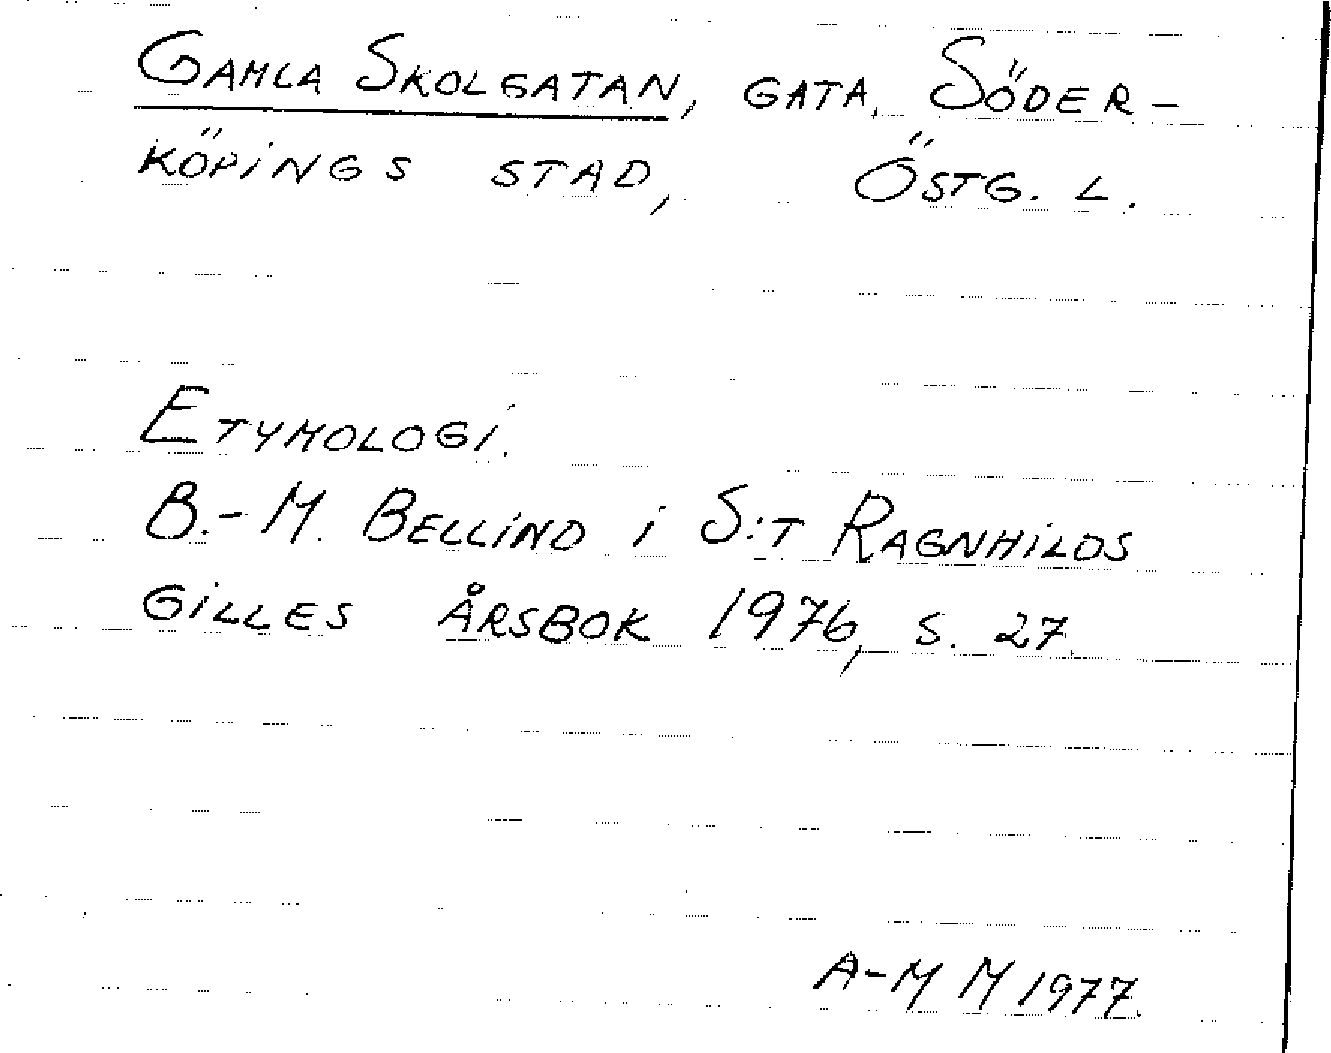 GAMLA SKOLGATAN, GATA, SÖDER-
KÖPINGS STAD, ÖSTG. L.
ETYMOLOGI.
B.-M. BELLIND i S:T RAGNHILDS
GILLES ÅRSBOK 1976, S. 27.
A-M M 1977.